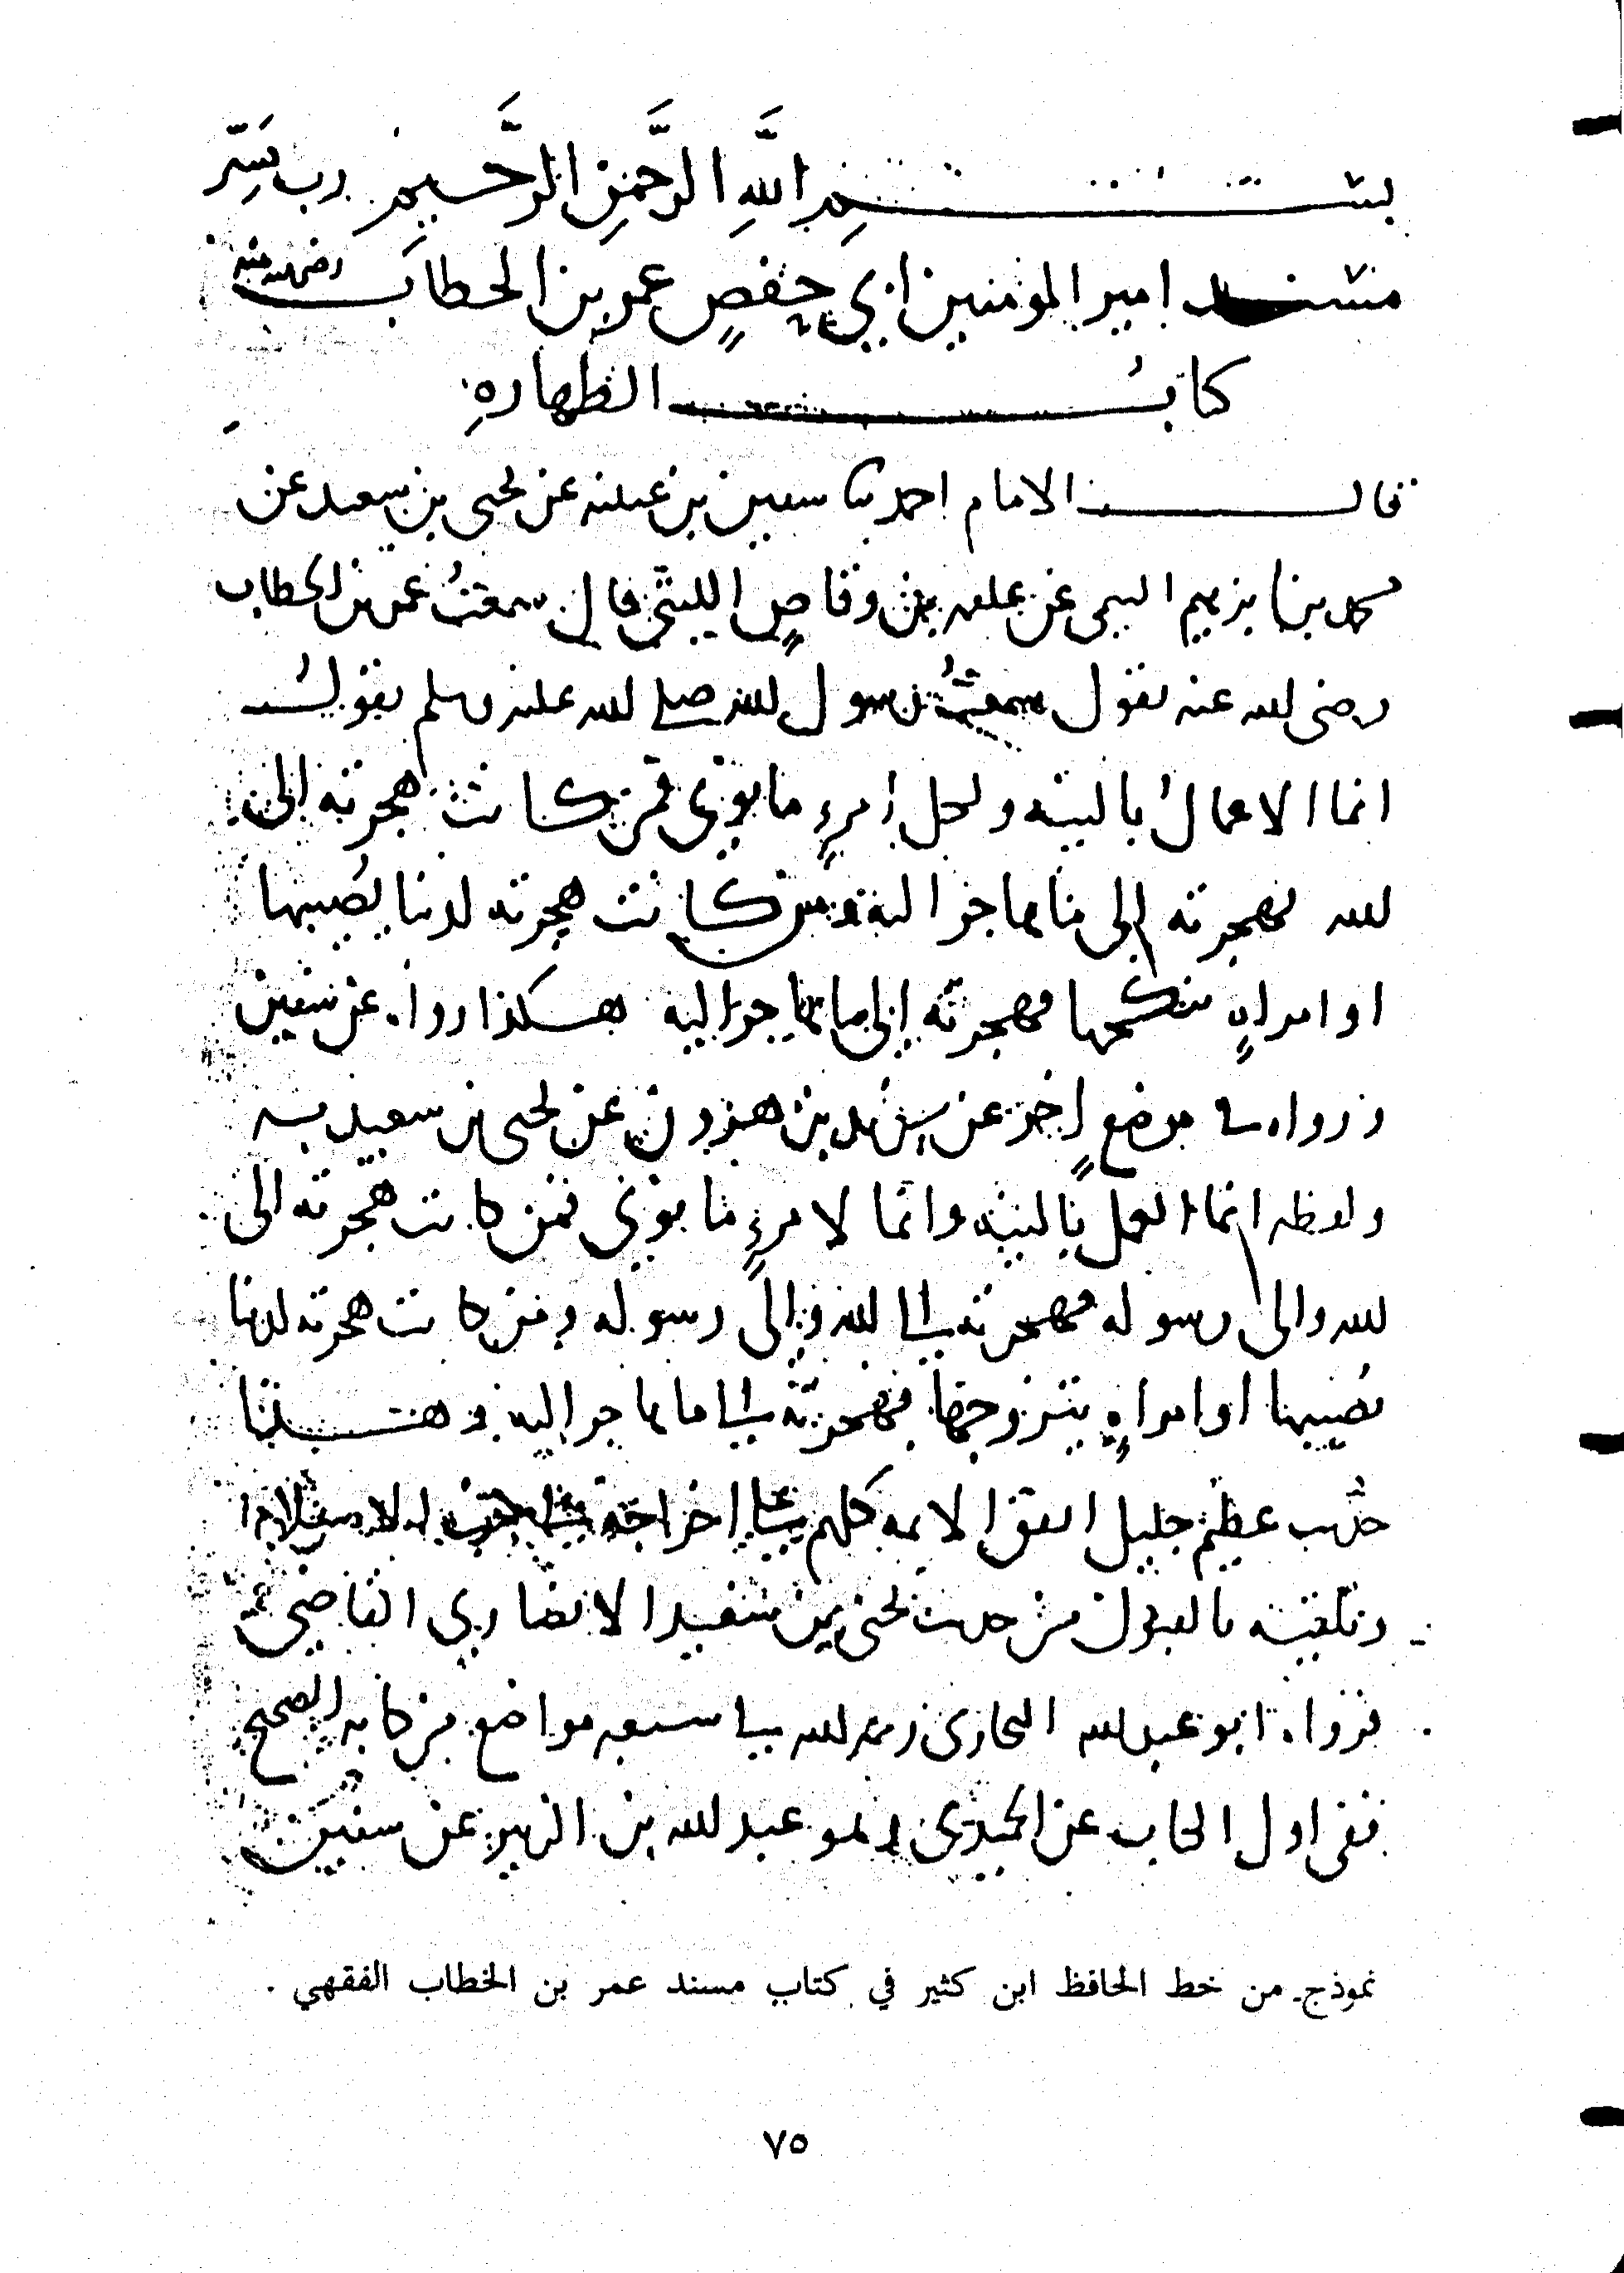 بسم اللَّهِ الرَّحمَنِ الرَّحِيمِ رب يَسِّر
مسند امير المومنين ابي حفصٍ عمر بن الخطاب رضي الله عنه
كتابُ الطهارهِ
قال الامام احمد ثنا سفين بن عيينه عن يحيى بن سعيد عن
محمد بن ابرهيم التيمي عن علقمه بن وقاصٍ الليثي قال سمعتُ عمر بن الخطاب
رضي الله عنه يقول سمعتُ رسول الله صلى الله عليه وسلم يقول
انما الاعمالُ بالنيه ولكل امرءٍ ما نوى فمن كانت هجرته الى
الله فهجرته الى ما هاجر اليه ومن كانت هجرته لدنيا يُصيبها
او امراهٍ ينكحها فهجرته الى ما هاجر اليه هكذا رواه عن سفين
ورواه في موضعٍ اخر عن يزيد بن هرون عن يحيى بن سعيد به
ولفظه انما العمل بالنيه وانما لامرءٍ ما نوى فمن كانت هجرته الى
الله والى رسوله فهجرته الى الله والى رسوله ومن كانت هجرته لدنيا
يُصيبها او امراهٍ يتزوجها فهجرته الى ما هاجر اليه وهذا
حديث عظيم جليل اتفق الايمه كلهم على اخراجه في الاسلام
وتلقيه بالقبول من حديث يحيى بن سعيد الانصاري القاضي
فرواه ابو عبد الله البخاري رحمه الله في سبعه مواضع من كتابه الصحيح
ففي اول الكتاب عن الحميدي وهو عبد الله بن الزبير عن سفين
نموذج من خط الحافظ ابن كثير في كتاب مسند عمر بن الخطاب الفقهي .
٧٥